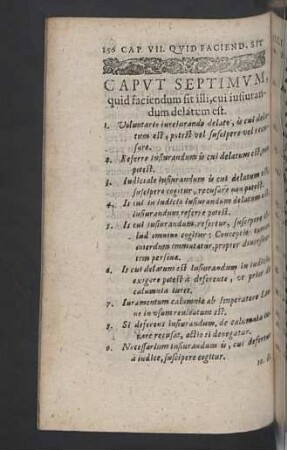 156 CAP. VII. QVID FACIEND. SIT
CAPVT SEPTIMVM,
quid faciendum sit illi, cui iusiuran-
dum delatum est.
1. Voluntario iureiurando delato, is cui dela-
tum est, potest vel suscipere vel recu-
sare.
2. Referre iusiurandum is cui delatum est,
potest.
3. Iudiciale iusiurandum is cui delatum est,
suscipere cogitur, recusare non potest.
4. Is cui in iudicio iusiurandum delatum est
iusiurandum referre potest.
5. Is cui iusiurandum refertur, suscipere
lud omnino cogitur: Conceptio
interdum immutatur, propter
tem personæ.
6. Is cui delatum est iusiurandum in iudicio
exigere potest à deferente, vt prior
calumnia iuret.
7. Iuramentum calumniæ ab Imperatore
ne in vsum reuocatum est.
8. Si deferens iusiurandum, de calumnia
iurare recuset, actio ei denegatur.
9. Necessarium iusiurandum is, cui defertur
à iudice, suscipere cogitur.
10.